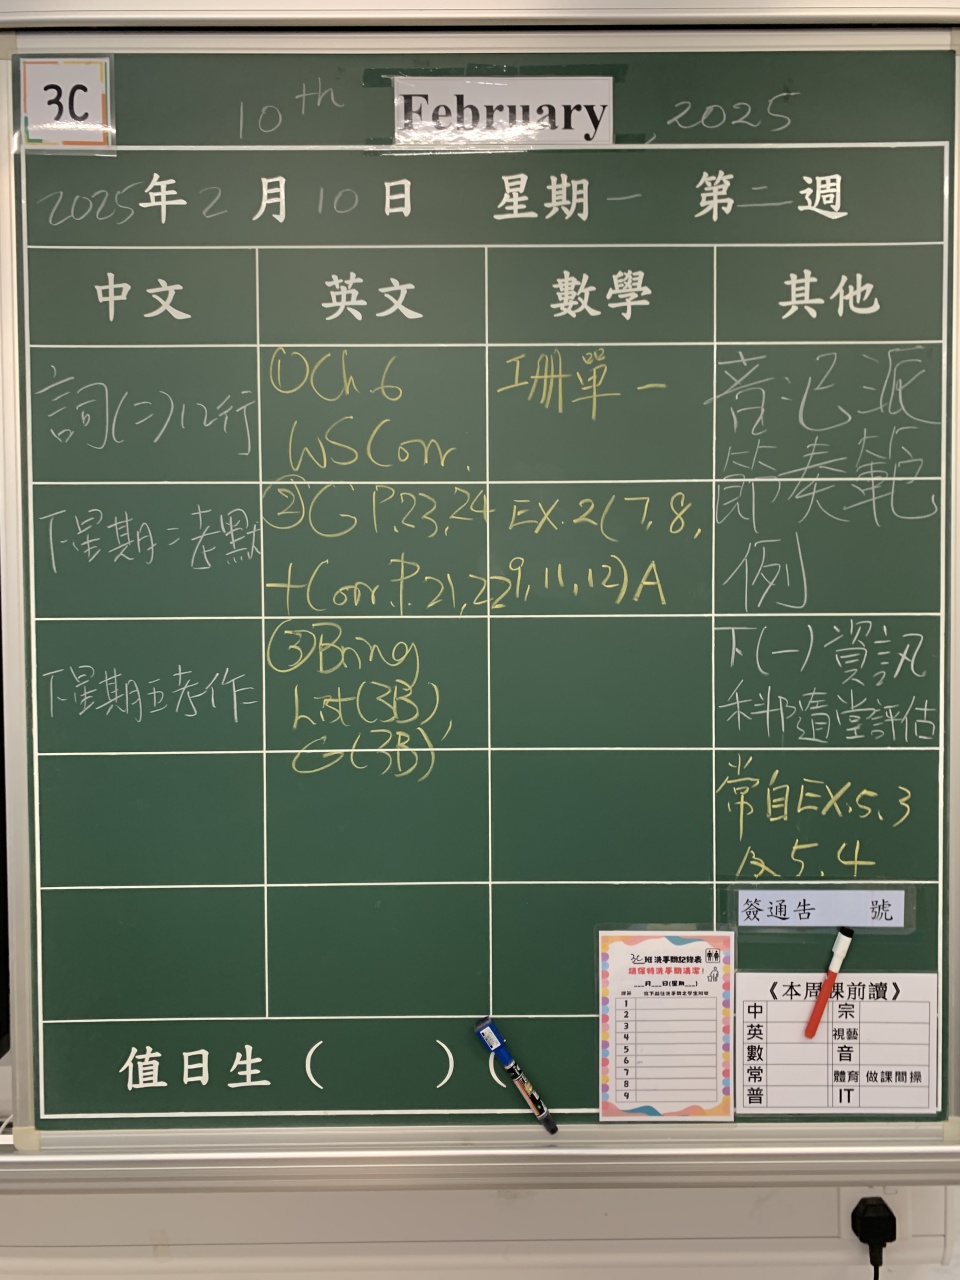 3C
10th February, 2025
2025年2月10日 星期一 第二週
中文 英文 數學 其他
詞(二)12行
下星期二考默
下星期五考作
①Ch.6
WS Corr.
②G P.23,24
+Corr.P.21,22
③Bring
List(3B),
G(3B)
工册單一
EX.2(7,8,
9,11,12)A
音記派
節奏範
例
下(一)資訊
科隨堂評估
常自EX.5.3
及5.4
簽通告 號
值日生( )(
3C班洗手間記錄表
請保持洗手間清潔!
___月___日(星期___)
1
2
3
4
5
6
7
8
9
《本周課前讀》
中 宗
英 視藝
數 音
常 體育 做課間操
普 IT